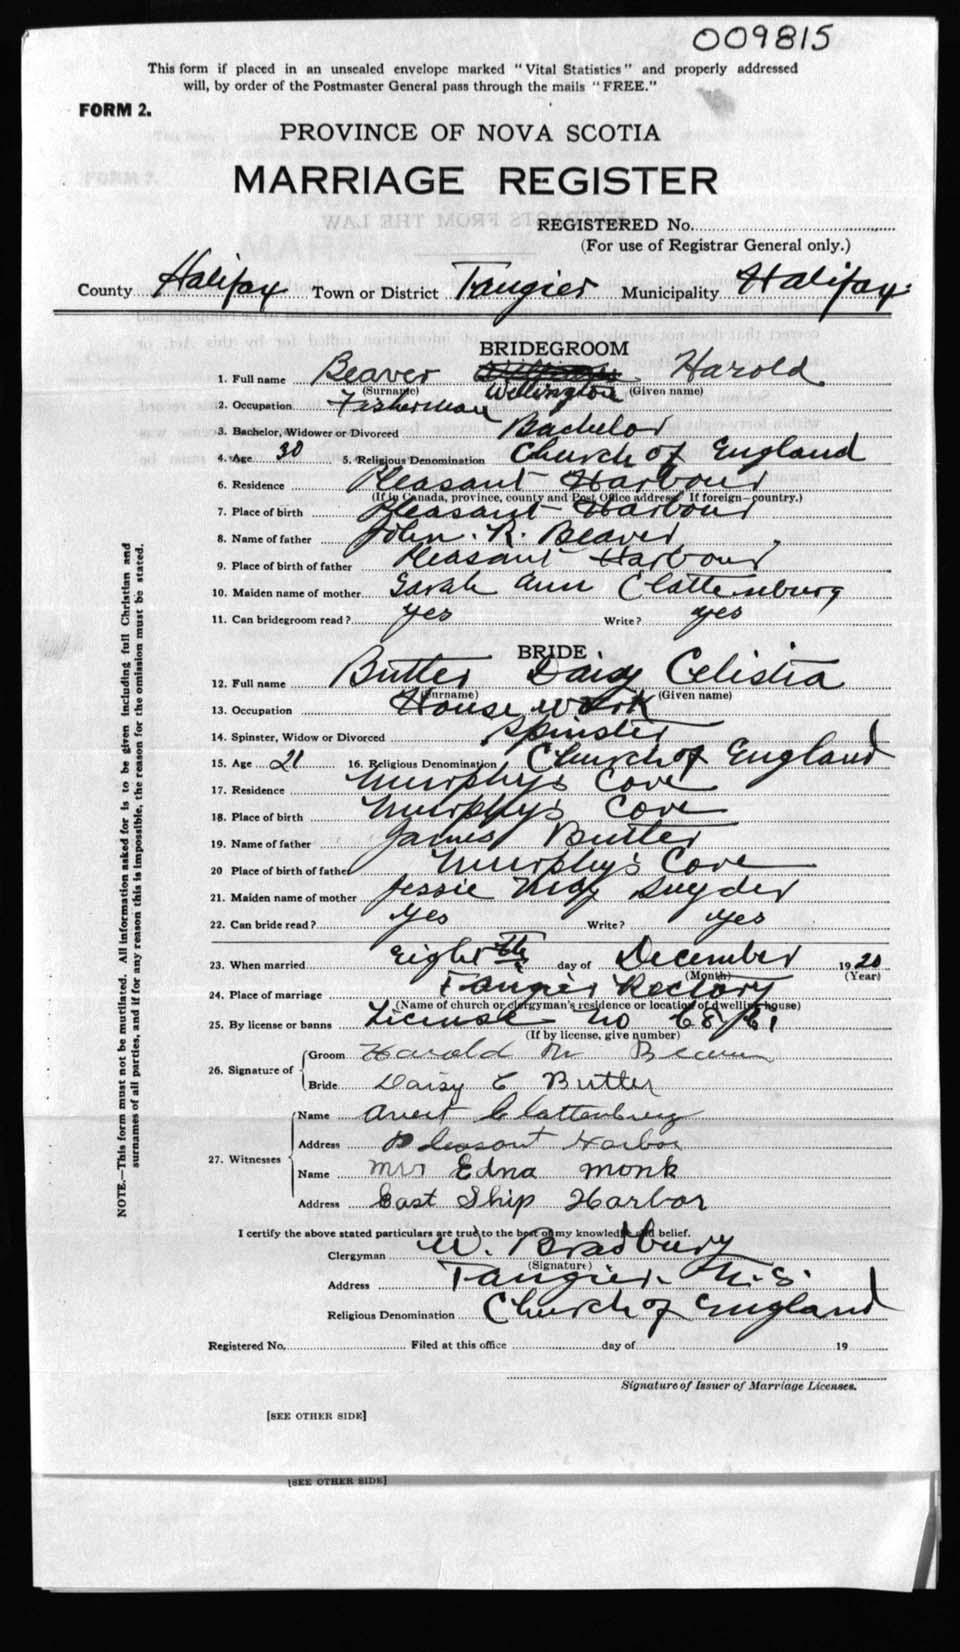 009815
This form if placed in an unsealed envelope marked "Vital Statistics" and properly addressed
will, by order of the Postmaster General pass through the mails "FREE."
FORM 2.
PROVINCE OF NOVA SCOTIA
MARRIAGE REGISTER
REGISTERED No.
(For use of Registrar General only.)
County Halifax Town or District Tangier Municipality Halifax
BRIDEGROOM
1. Full name Beaver Wellington Harold
(Surname) (Given name)
2. Occupation Fisherman
3. Bachelor, Widower or Divorced Bachelor
4. Age 30 5. Religious Denomination Church of England
6. Residence Pleasant Harbour
(If in Canada, province, county and Post Office address. If foreign—country.)
7. Place of birth Pleasant Harbour
8. Name of father John. R. Beaver
9. Place of birth of father Pleasant Harbour
10. Maiden name of mother Sarah Ann Clattenburg
11. Can bridegroom read? yes Write? yes
BRIDE
12. Full name Butler Daisy Celistia
(Surname) (Given name)
13. Occupation House work
14. Spinster, Widow or Divorced Spinster
15. Age 21 16. Religious Denomination Church of England
17. Residence Murphy's Cove
18. Place of birth Murphy's Cove
19. Name of father James Butler
20 Place of birth of father Murphy's Cove
21. Maiden name of mother Jessie May Snyder
22. Can bride read? Yes Write? yes
23. When married Eighth day of December 1920
(Month) (Year)
24. Place of marriage Tangier Rectory
(Name of church or clergyman's residence or location of dwelling house)
25. By license or banns License no
(If by license, give number)
26. Signature of Groom Harold
Bride Daisy C Butler
27. Witnesses Name Clattenburg
Address Pleasant Harbor
Name Mrs Edna Monk
Address East Ship Harbor
I certify the above stated particulars are true to the best of my knowledge and belief.
Clergyman W. Bradbury
(Signature)
Address Tangier. N.S.
Religious Denomination Church of England
Registered No. Filed at this office day of 19
Signature of Issuer of Marriage Licenses.
[SEE OTHER SIDE]
[SEE OTHER SIDE]
NOTE.—This form must not be mutilated. All information asked for is to be given including full Christian and
surnames of all parties, and if for any reason this is impossible, the reason for the omission must be stated.